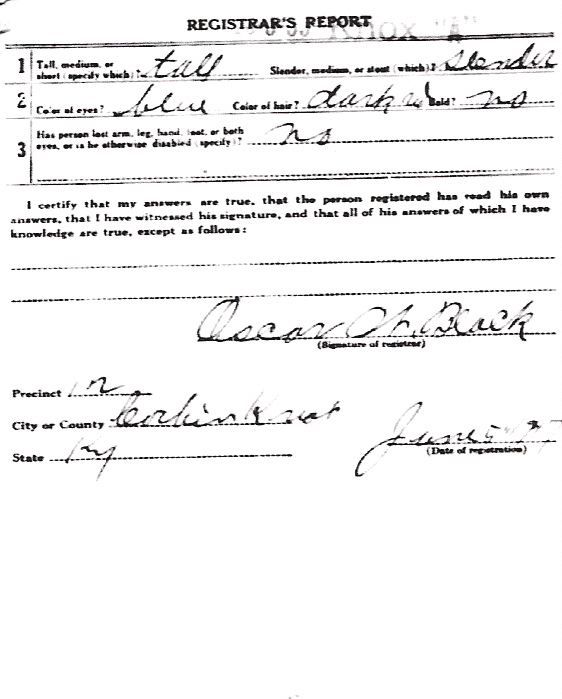 REGISTRAR'S REPORT
KNOX "A"
1 Tall, medium, or short (specify which)? tall Slender, medium, or stout (which)? Slender
2 Color of eyes? blue Color of hair? dark Bald? no
3 Has person lost arm, leg, hand, foot, or both
eyes, or is he otherwise disabled (specify)? no
I certify that my answers are true, that the person registered has read his own
answers, that I have witnessed his signature, and that all of his answers of which I have
knowledge are true, except as follows:
Oscar Black
(Signature of registrar)
Precinct 12
City or County Corbin Knox
State Ky
June 5
(Date of registration)